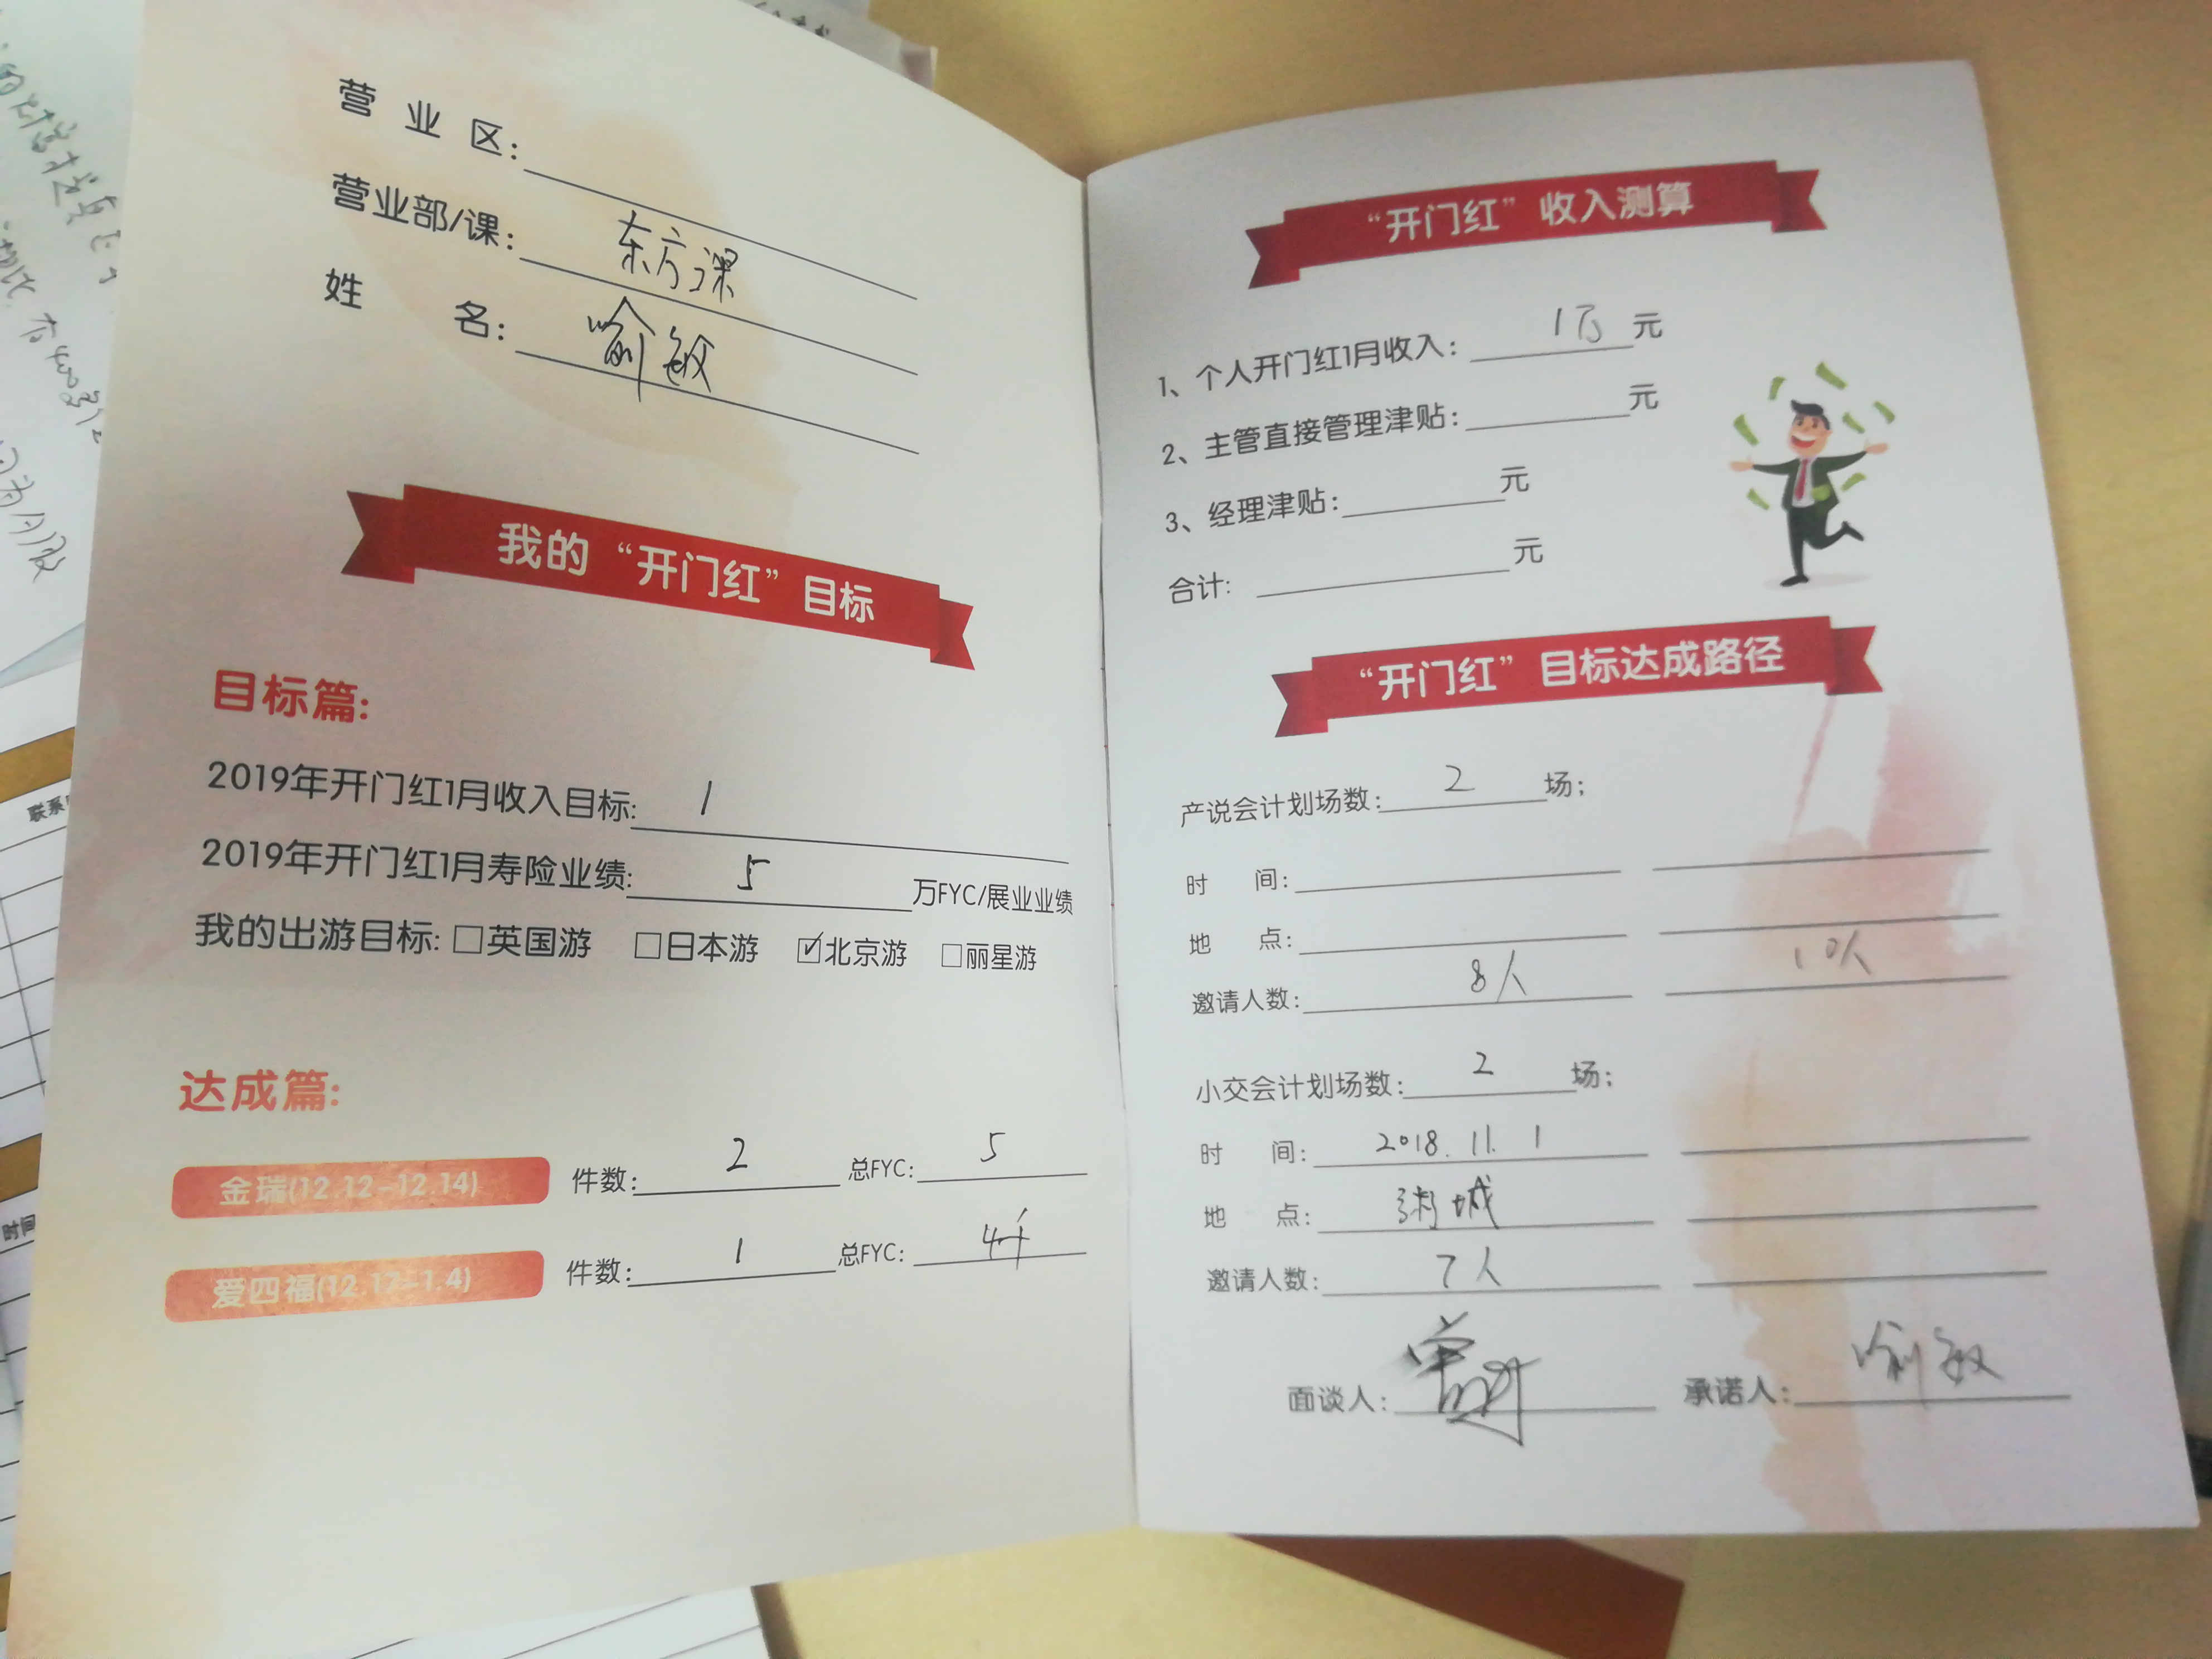 营业区:
营业部/课: 东方课
姓名: 喻敏
我的“开门红”目标
目标篇:
2019年开门红1月收入目标: 1
2019年开门红1月寿险业绩: 5 万FYC/展业业绩
我的出游目标: □英国游 □日本游 ☑北京游 □丽星游
达成篇:
金瑞(12.12-12.14) 件数: 2 总FYC: 5
爱四福(12.17-1.4) 件数: 1 总FYC: 4千
“开门红”收入测算
1、个人开门红1月收入: 1万 元
2、主管直接管理津贴: 元
3、经理津贴: 元
合计: 元
“开门红”目标达成路径
产说会计划场数: 2 场;
时间:
地点:
邀请人数: 8人 10人
小交会计划场数: 2 场;
时间: 2018.11.1
地点: 粥城
邀请人数: 7人
面谈人: 承诺人: 喻敏
联系
时间